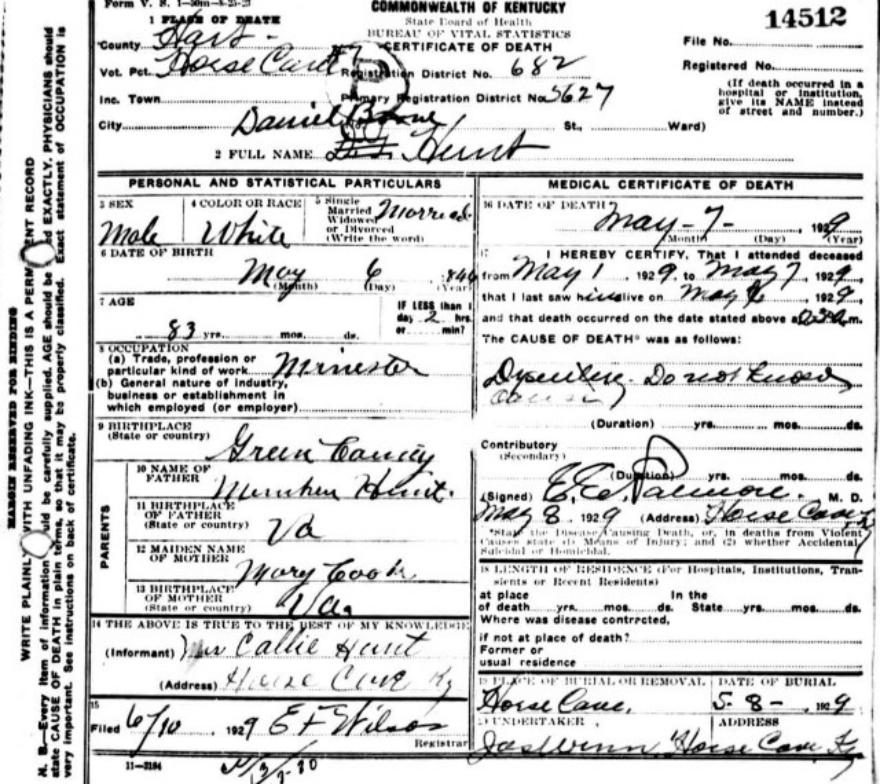 Form V. S. 1-50m-8-25-27
COMMONWEALTH OF KENTUCKY
State Board of Health
BUREAU OF VITAL STATISTICS
CERTIFICATE OF DEATH
14512
1 PLACE OF DEATH
County Hart
Vot. Pct. Horse Cave
Registration District No. 682
Inc. Town
Primary Registration District No. 5627
City
St., Ward)
File No.
Registered No.
(If death occurred in a
hospital or institution,
give its NAME instead
of street and number.)
Daniel Boone
2 FULL NAME Hunt
PERSONAL AND STATISTICAL PARTICULARS
3 SEX
Male
4 COLOR OR RACE
White
5 Single
Married
Widowed
or Divorced
(Write the word)
Married
6 DATE OF BIRTH
May 6 1846
(Month) (Day) (Year)
7 AGE
83 yrs. mos. ds.
IF LESS than 1
day 2 hrs.
or min?
8 OCCUPATION
(a) Trade, profession or
particular kind of work Minister
(b) General nature of industry,
business or establishment in
which employed (or employer)
9 BIRTHPLACE
(State or country)
Green County
PARENTS
10 NAME OF
FATHER
Hunt.
11 BIRTHPLACE
OF FATHER
(State or country)
Va
12 MAIDEN NAME
OF MOTHER
Mary Cook
13 BIRTHPLACE
OF MOTHER
(State or country)
Va.
14 THE ABOVE IS TRUE TO THE BEST OF MY KNOWLEDGE
(Informant) Callie Hunt
(Address) Horse Cave Ky
15
Filed 6/10 1929 E F Wilson
Registrar
11-3184
MEDICAL CERTIFICATE OF DEATH
16 DATE OF DEATH
May-7-, 1929
(Month) (Day) (Year)
17 I HEREBY CERTIFY, That I attended deceased
from May 1 1929, to May 7, 1929,
that I last saw him alive on May, 1929,
and that death occurred on the date stated above at m.
The CAUSE OF DEATH* was as follows:
Dysentery. Do not know
cause
(Duration) yrs. mos. ds.
Contributory
(Secondary)
(Duration) yrs. mos. ds.
(Signed) E. E. Palmore. M. D.
May 8. 1929 (Address) Horse Cave,
*State the Disease Causing Death, or, in deaths from Violent
Causes state (1) Means of Injury; and (2) whether Accidental,
Suicidal or Homicidal.
18 LENGTH OF RESIDENCE (For Hospitals, Institutions, Tran-
sients or Recent Residents)
at place In the
of death yrs. mos. ds. State yrs. mos. ds.
Where was disease contrected,
if not at place of death?
Former or
usual residence
19 PLACE OF BURIAL OR REMOVAL
Horse Cave,
DATE OF BURIAL
5-8-1929
20 UNDERTAKER
ADDRESS
Horse Cave Ky
MARGIN RESERVED FOR BINDING
WRITE PLAINLY WITH UNFADING INK—THIS IS A PERMANENT RECORD
N. B.—Every item of information should be carefully supplied. AGE should be stated EXACTLY. PHYSICIANS should
state CAUSE OF DEATH in plain terms, so that it may be properly classified. Exact statement of OCCUPATION is
very important. See instructions on back of certificate.